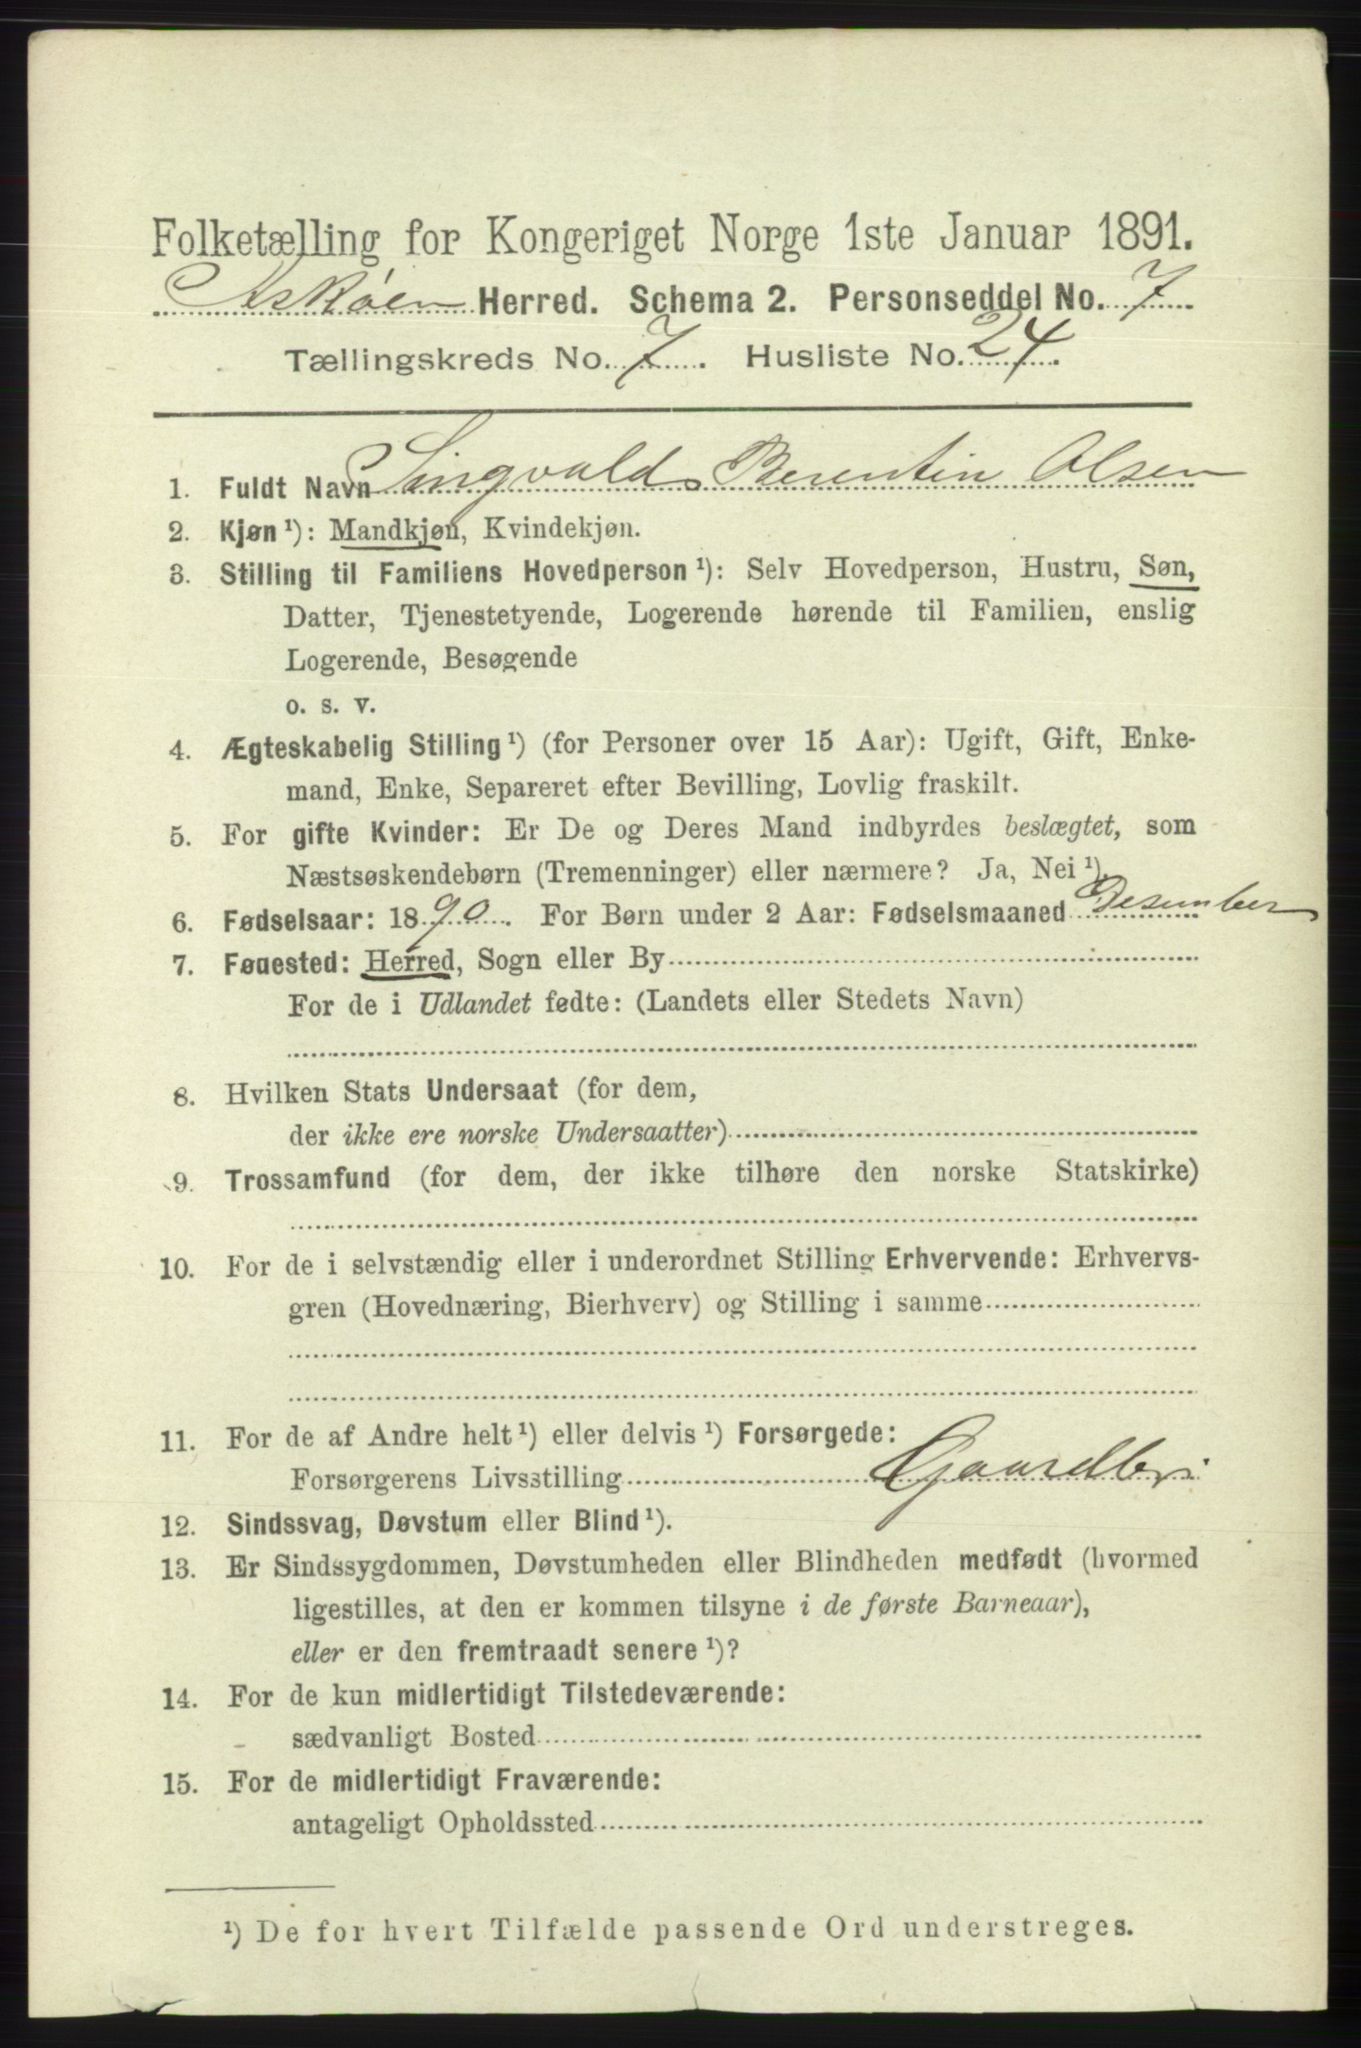 Folketælling for Kongeriget Norge 1ste Januar 1891.
Askøen Herred. Schema 2. Personseddel No. 7
Tællingskreds No. 7. Husliste No. 24.
1. Fuldt Navn Singvald Berentin Olsen
2. Kjøn ¹): Mandkjøn, Kvindekjøn.
3. Stilling til Familiens Hovedperson ¹): Selv Hovedperson, Hustru, Søn,
Datter, Tjenestetyende, Logerende hørende til Familien, enslig
Logerende, Besøgende
o. s. v.
4. Ægteskabelig Stilling ¹) (for Personer over 15 Aar): Ugift, Gift, Enke-
mand, Enke, Separeret efter Bevilling, Lovlig fraskilt.
5. For gifte Kvinder: Er De og Deres Mand indbyrdes beslægtet, som
Næstsøskendebørn (Tremenninger) eller nærmere? Ja, Nei ¹)
6. Fødselsaar: 1890. For Børn under 2 Aar: Fødselsmaaned Desember
7. Føuested: Herred, Sogn eller By
For de i Udlandet fødte: (Landets eller Stedets Navn)
8. Hvilken Stats Undersaat (for dem,
der ikke ere norske Undersaatter)
9. Trossamfund (for dem, der ikke tilhøre den norske Statskirke)
10. For de i selvstændig eller i underordnet Stilling Erhvervende: Erhvervs-
gren (Hovednæring, Bierhverv) og Stilling i samme
11. For de af Andre helt ¹) eller delvis ¹) Forsørgede:
Forsørgerens Livsstilling Gaardbr.
12. Sindssvag, Døvstum eller Blind ¹).
13. Er Sindssygdommen, Døvstumheden eller Blindheden medfødt (hvormed
ligestilles, at den er kommen tilsyne i de første Barneaar),
eller er den fremtraadt senere ¹)?
14. For de kun midlertidigt Tilstedeværende:
sædvanligt Bosted
15. For de midlertidigt Fraværende:
antageligt Opholdssted
¹) De for hvert Tilfælde passende Ord understreges.